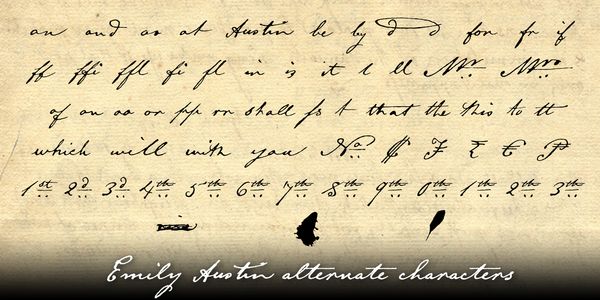 an and as at Austin be by d d for fr if
ff ffi ffl fi fl in is it l ll Mr. Mrs.
of on oo or pp rr shall ss t that the this to tt
which will with you No. ₣ ₹ €
1st 2d 3d 4th 5th 6th 7th 8th 9th 0th 1th 2th 3th
Emily Austin alternate characters